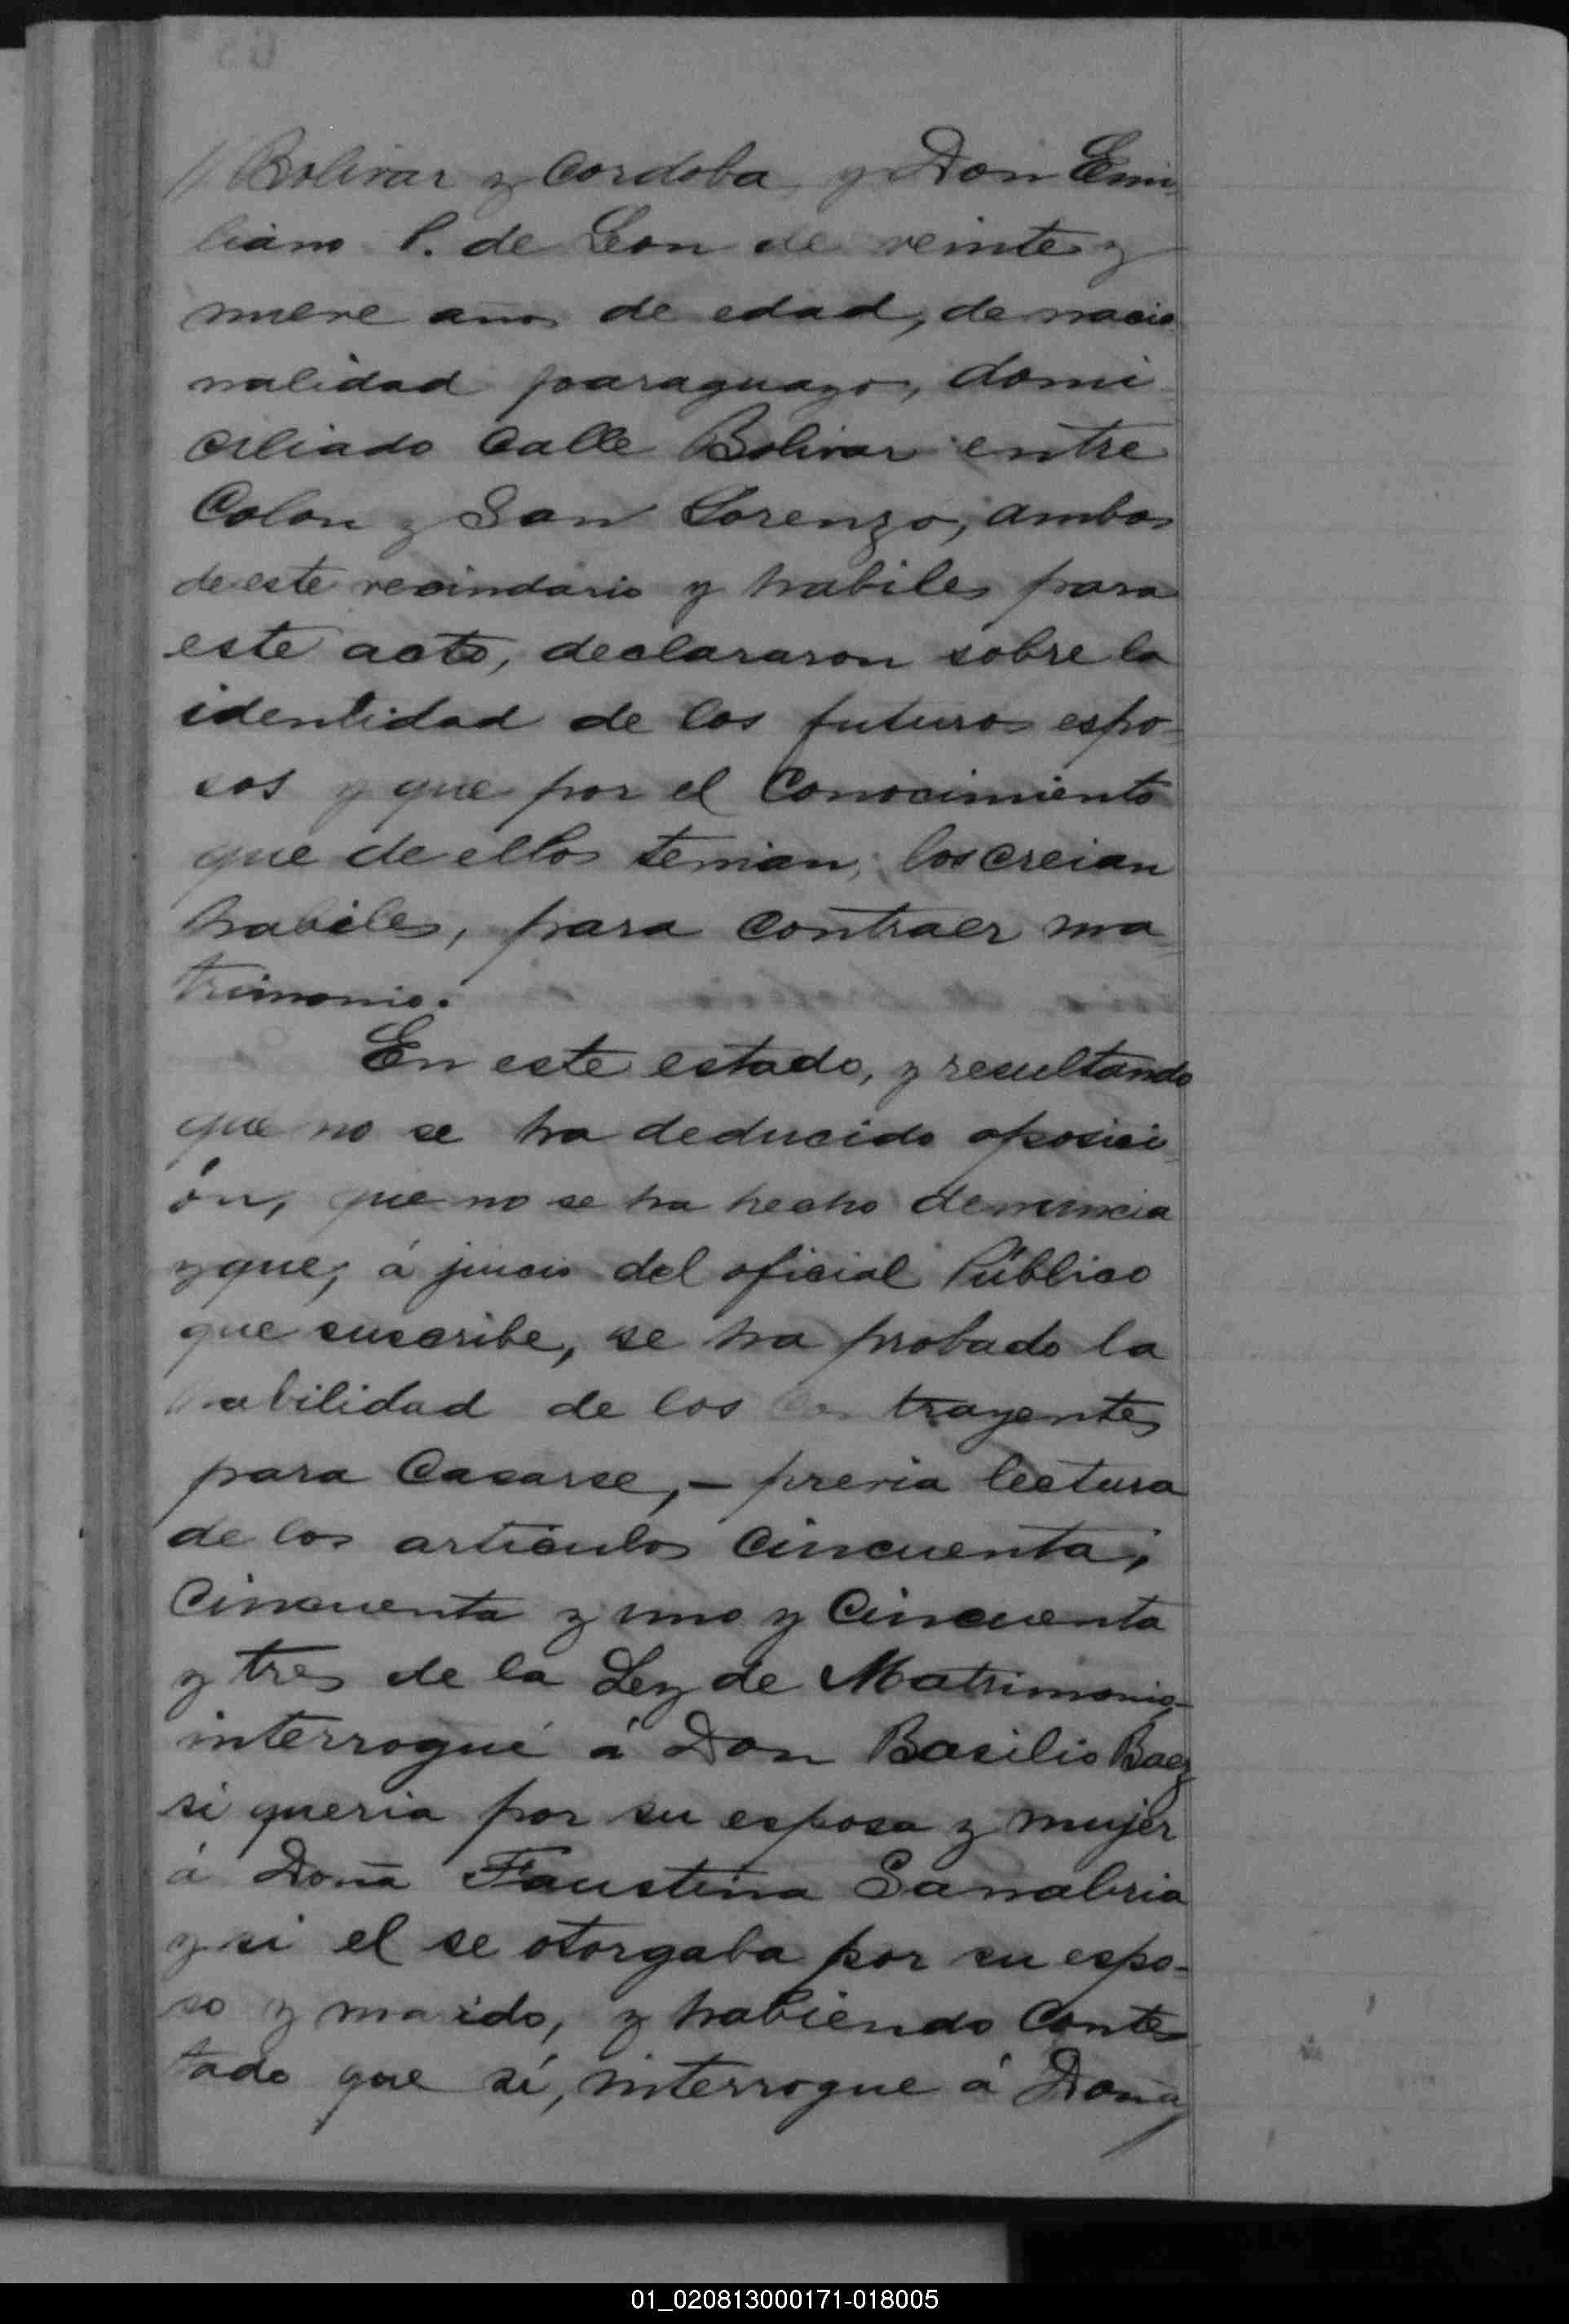 // Bolivar y Cordoba y Don Emi
liano P. de Leon de veinte y
nueve años de edad, de nacio
nalidad paraguayo, domi
ciliado Calle Bolivar entre
Colon y San Lorenzo, ambos
de este vecindario y habiles para
este acto, declararon sobre la
identidad de los futuros espo-
sos y que por el Conocimiento
que de ellos tenian, los creian
habiles, para Contraer ma
trimonio.
En este estado, y resultando
que no se ha deducido oposici
ón, que no se ha hecho denuncia
y que, á juicio del oficial Público
que suscribe, se ha probado la
habilidad de los contrayentes
para Casarse, - previa lectura
de los articulos Cincuenta,
Cincuenta y uno y Cincuenta
y tres de la Ley de Matrimonio-
interrogué á Don Basilio Baez
si queria por su esposa y mujer
á Doña Faustina Sanabria
y si el se otorgaba por su espo-
so y marido, y habiendo Contes
tado que sí, interrogue á Doña
01_020813000171-018005